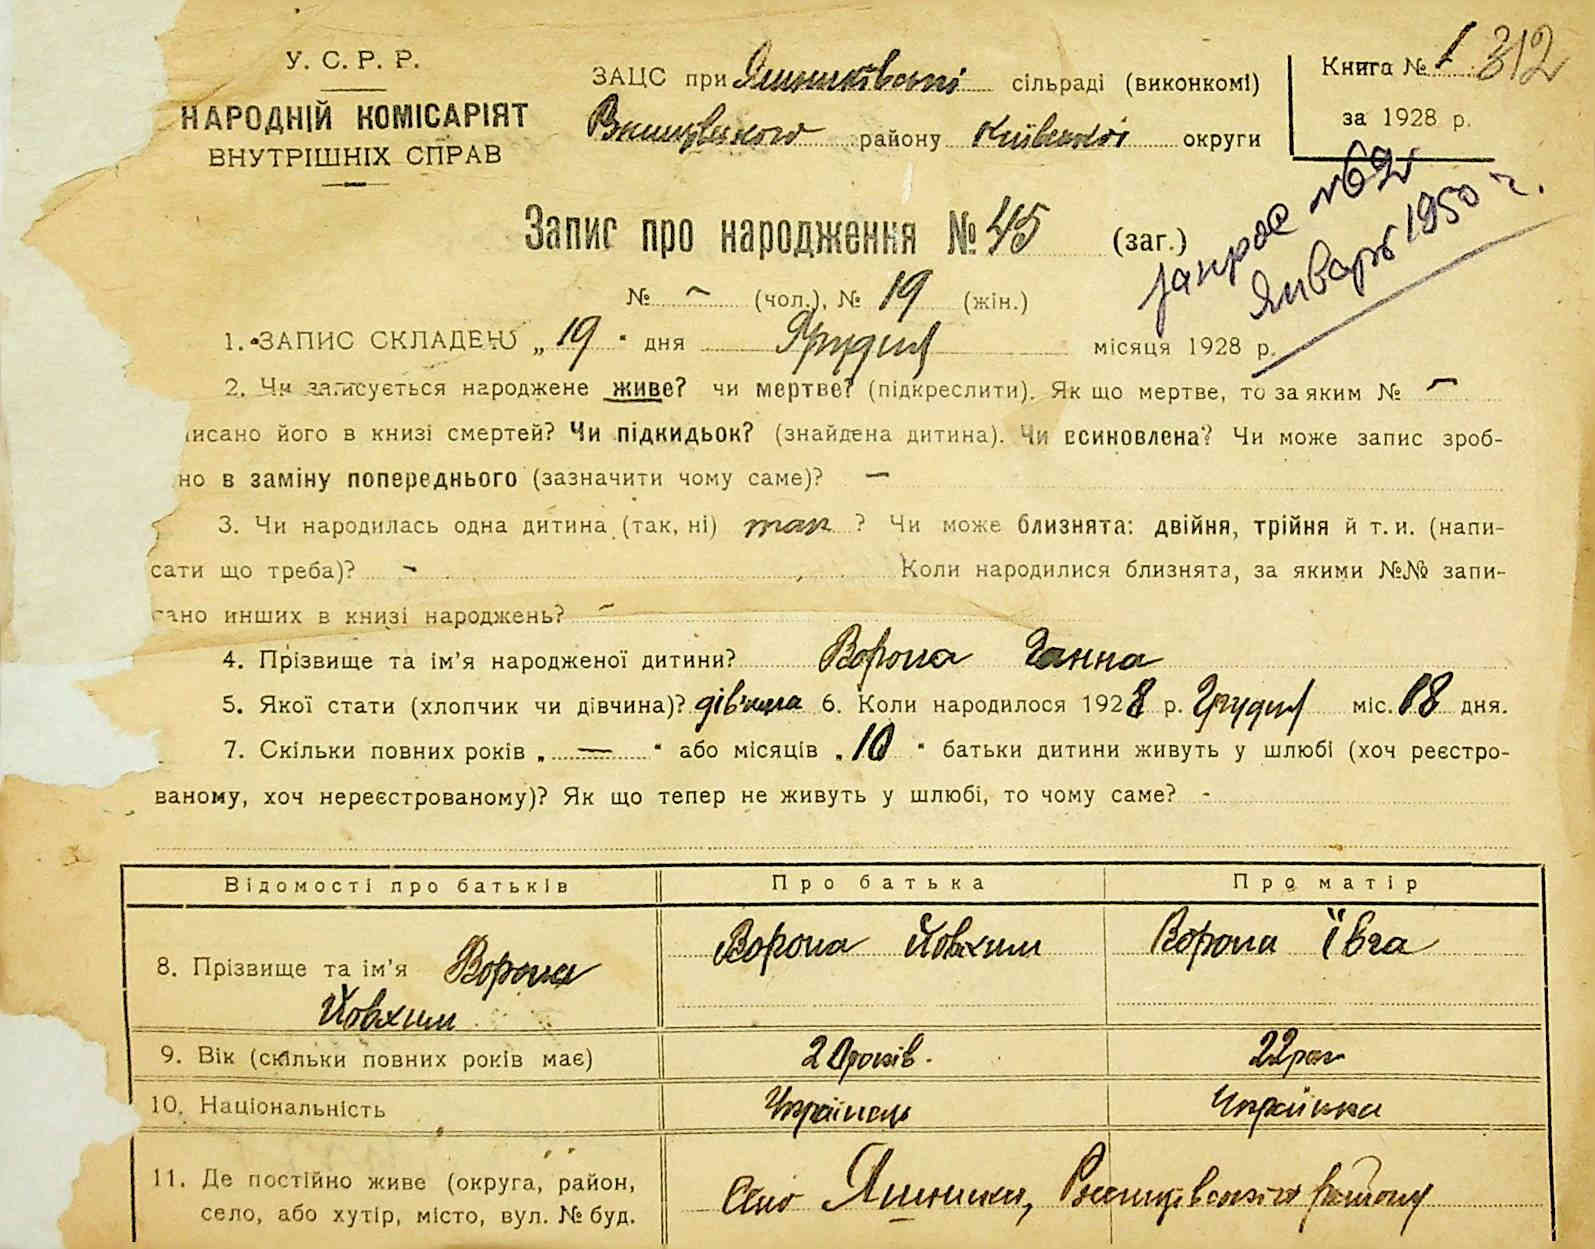 У. С. Р. Р.
НАРОДНІЙ КОМІСАРІЯТ
ВНУТРІШНІХ СПРАВ
ЗАЦС при Яшниківській сільраді (виконкомі)
Ржищівського району Київської округи
Книга № 1 312
за 1928 р.
Запрос №62
Январь 1950 г.
Запис про народження № 45 (заг.)
№ - (чол.), № 19 (жін.)
1. ЗАПИС СКЛАДЕНО „ 19 " дня Грудня місяця 1928 р.
2. Чи записується народжене живе? чи мертве? (підкреслити). Як що мертве, то за яким № -
писано його в книзі смертей? Чи підкидьок? (знайдена дитина). Чи всиновлена? Чи може запис зроб-
но в заміну попереднього (зазначити чому саме)? -
3. Чи народилась одна дитина (так, ні) так ? Чи може близнята: двійня, трійня й т. и. (напи-
сати що треба)? - Коли народилися близнята, за якими №№ запи-
сано инших в книзі народжень? -
4. Прізвище та ім'я народженої дитини? Ворона Ганна
5. Якої стати (хлопчик чи дівчина)? дівчина 6. Коли народилося 1928 р. Грудня міс. 18 дня.
7. Скільки повних років „ — " або місяців „ 10 " батьки дитини живуть у шлюбі (хоч реєстро-
ваному, хоч нереєстрованому)? Як що тепер не живуть у шлюбі, то чому саме? -
Відомості про батьків Про батька Про матір
8. Прізвище та ім'я Ворона Йовхим Ворона Йовхим Ворона Ївга
9. Вік (скільки повних років має) 20 років. 22 рок
10. Національність Українець Українка
11. Де постійно живе (округа, район,
село, або хутір, місто, вул. № буд.
Село Яшники, Ржищівського району